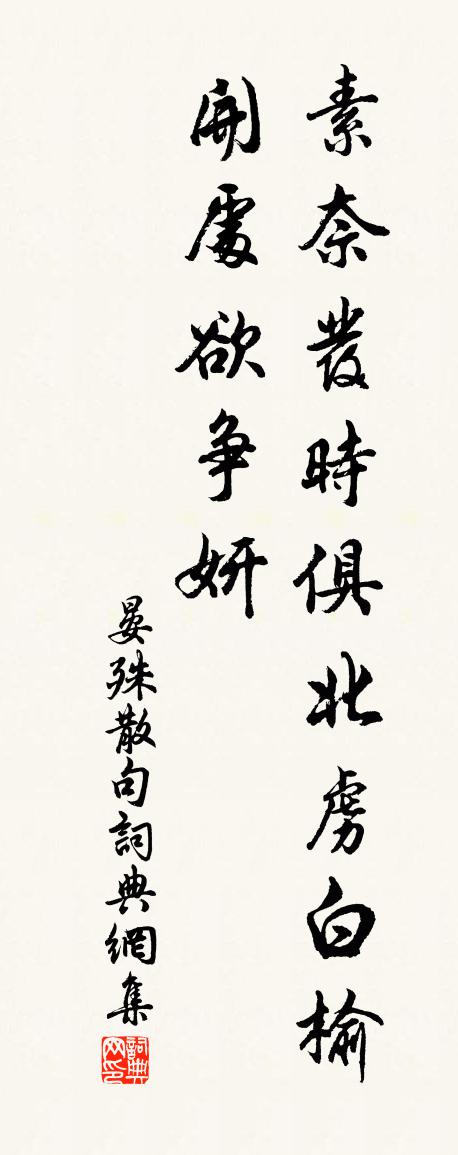 素奈發時俱北虜白榆
開處欲爭妍
晏殊散句詞典網集
詞典网印